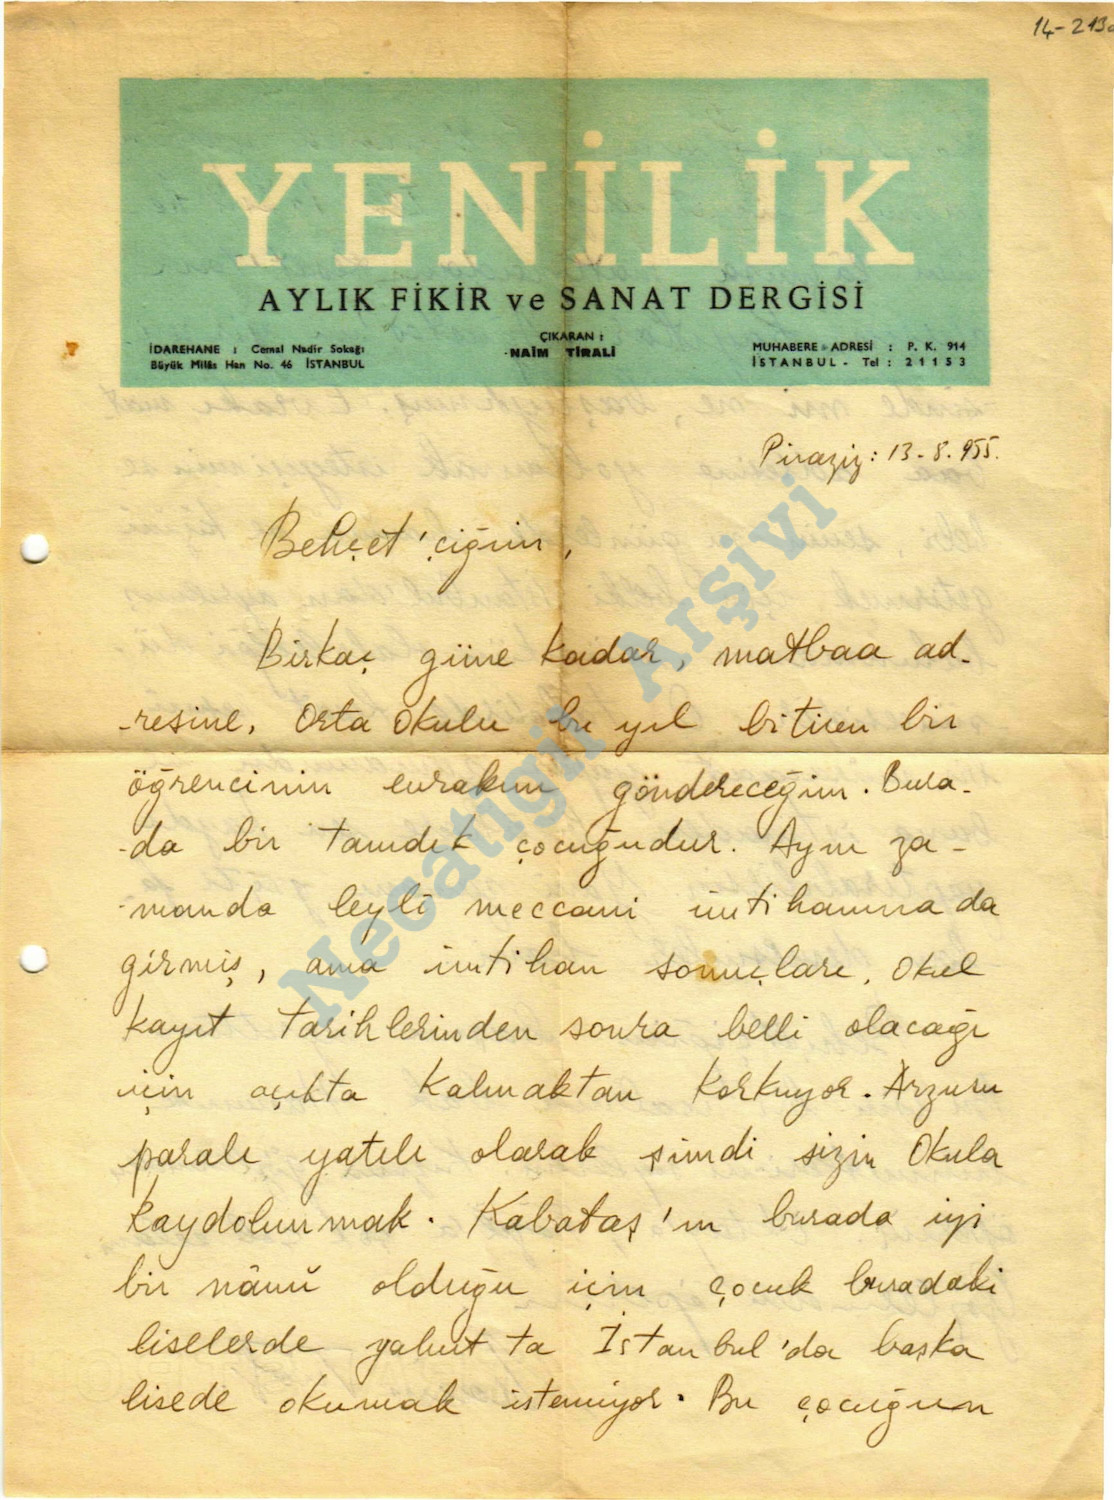 14-213a
YENİLİK
AYLIK FİKİR ve SANAT DERGİSİ
İDAREHANE : Cemal Nadir Sokağı
Büyük Milâs Han No. 46 İSTANBUL
ÇIKARAN :
NAİM TİRALİ
MUHABERE ADRESİ : P. K. 914
İSTANBUL - Tel : 21153
Piraziz: 13-8-955.
Behçet'çiğim,
Birkaç güne kadar, matbaa ad-
-resine, Orta Okulu bu yıl bitiren bir
öğrencinin evrakını göndereceğim. Bura-
-da bir tanıdık çocuğudur. Aynı za-
-manda leylî meccani imtihanına da
girmiş, ama imtihan sonuçları, okul
kayıt tarihlerinden sonra belli olacağı
için açıkta kalmaktan korkuyor. Arzusu
paralı yatılı olarak şimdi sizin Okula
kaydolunmak. Kabataş'ın burada iyi
bir nâmı olduğu için çocuk buradaki
liselerde yahut ta İstanbul'da başka
lisede okumak istemiyor. Bu çocuğun
Necatigil Arşivi